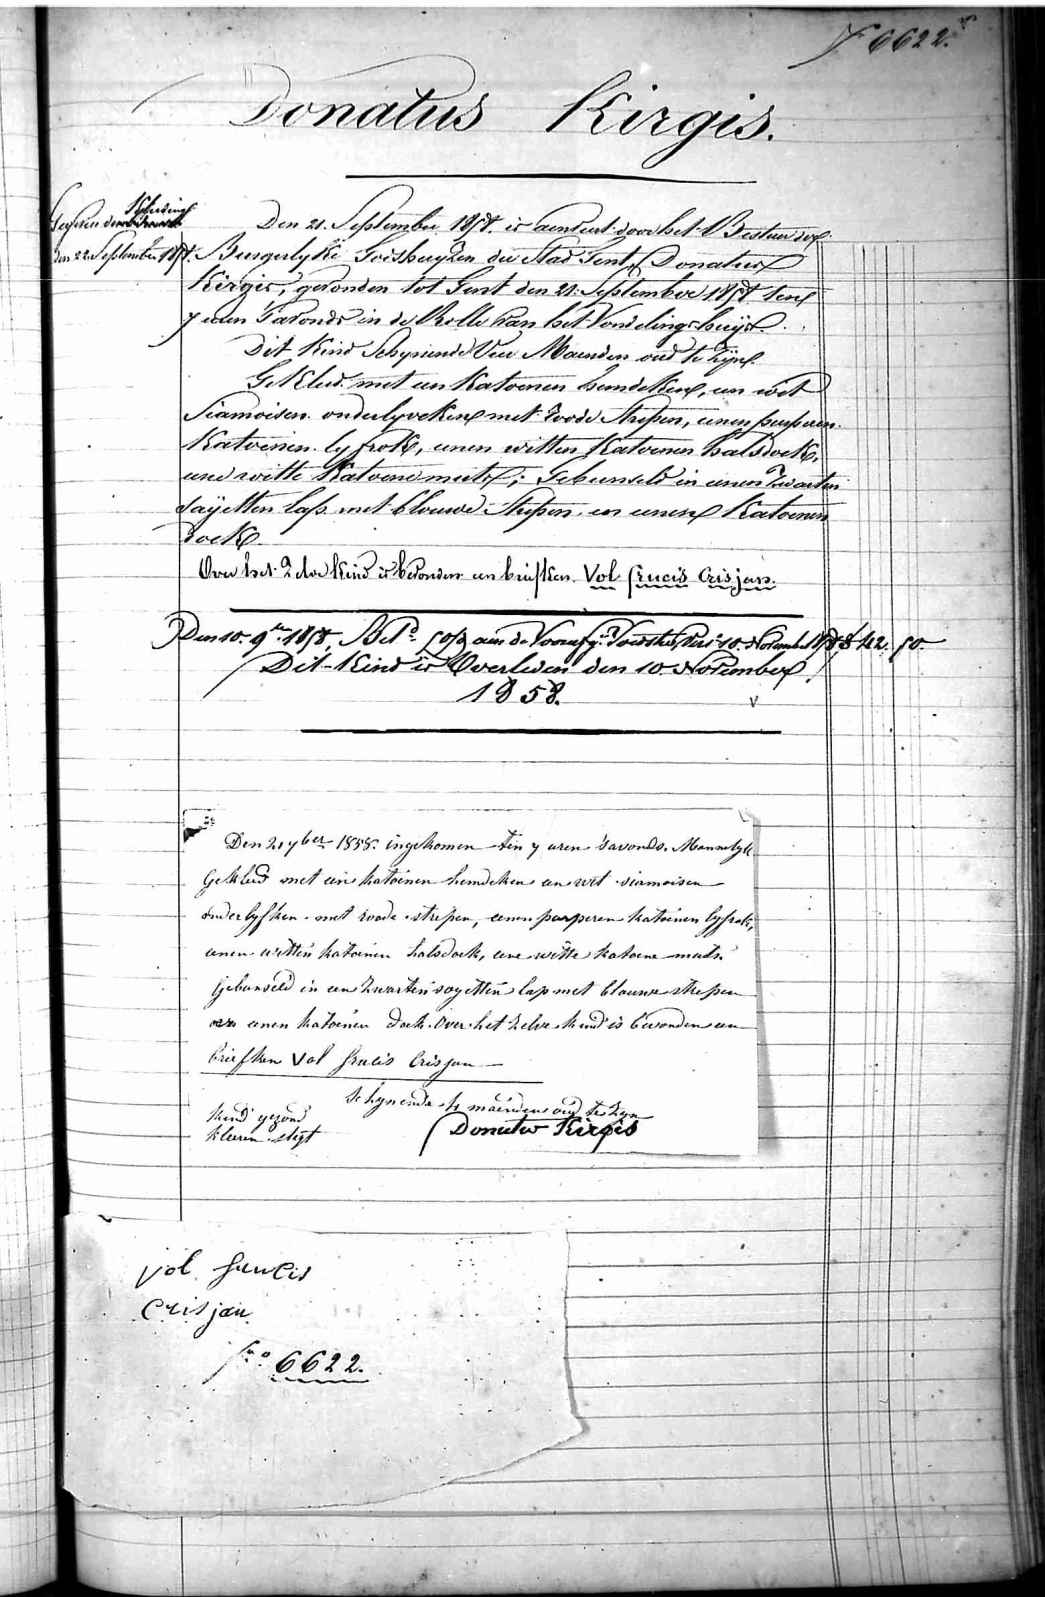 6622.
Donatus Kirgis.
den 22 September 1858.
Den 21 September 1858. is aenveert door het Bestuer der
Burgerlyke Godshuyzen der Stad Gent, Donatus
Kirgis, gevonden tot Gent den 21 September 1858 ten
7 uren 'savonds in de Rolle van het Vondelingshuys.
Dit Kind Schynende Vier Maenden oud te zyn.
Gekleed met een Katoenen hemdeken, een wit
Siamoisen onderlyveken met roode Strepen, eenen purperen
Katoenen lyfrok, eenen witten Katoenen halsdoek,
eene witte Katoene muts; Gebunseld in eenen Zwarten
sayetten lap met blouwe Strepen en eenen Katoenen
doek.
Over het Zelve Kind is bevonden een briefken Vol frucis Crisjan.
Den 10. 9ber 1858, aen de 10 November 1858 42. 50.
Dit Kind is Overleden den 10 November
1858.
Den 21 7ber 1858. ingekomen ten 7 uren 's avonds. Mannelyk
Gekleed met een katoenen hemdeken een wit siamoisen
onderlyfken met roode strepen, eenen purperen katoenen lyfrok,
eenen witten katoenen halsdoek, eene witte katoene muts
Gebunseld in een zwarten sayetten lap met blauwe strepen
en eenen katoenen doek. Over het zelve kind is bevonden een
briefken Vol frucis Crisjan
Schynende 4 maenden oud te zyn
kind gezond
kleeren slegt
Donatus Kirgis
vol frucis
Crisjan
No 6622.